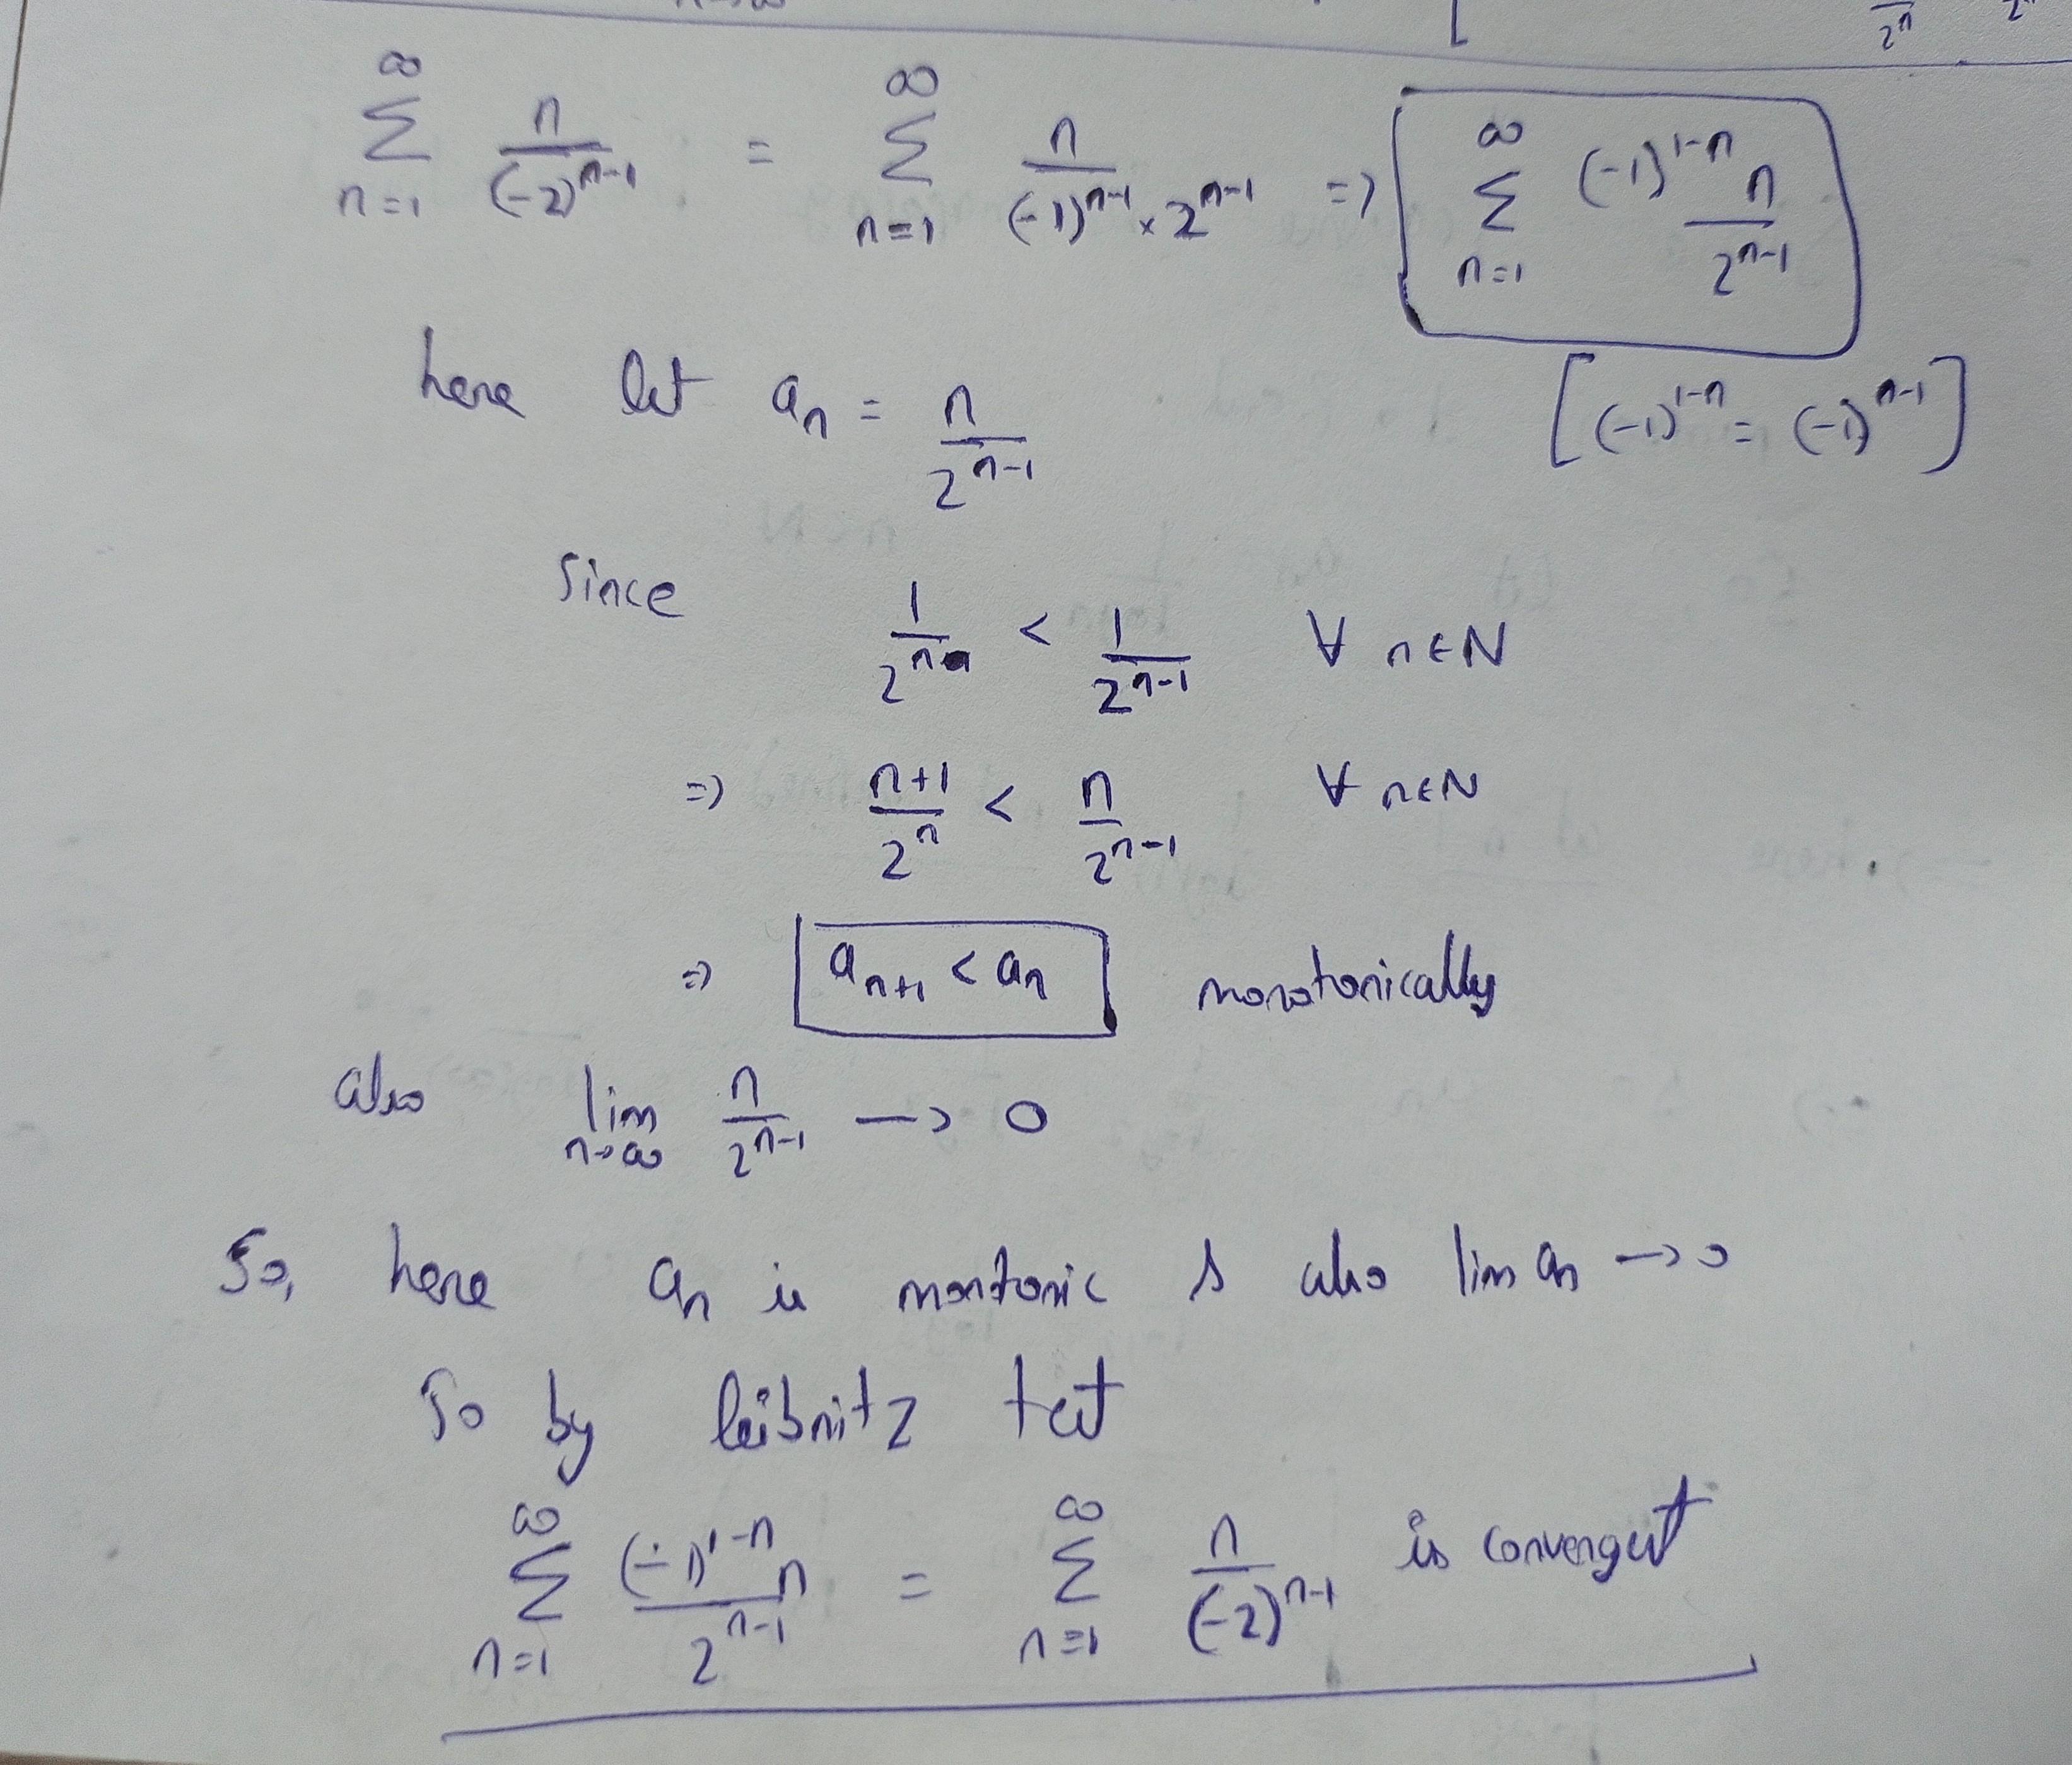 ∞ ∑ n=1 n/(-2)^{n-1} = ∞ ∑ n=1 n/((-1)^{n-1} × 2^{n-1}) => ∞ ∑ n=1 (-1)^{1-n} n/2^{n-1}
here let a_n = n/2^{n-1} [(-1)^{1-n} = (-1)^{n-1}]
Since 1/2^n < 1/2^{n-1} ∀ n∈N
=> n+1/2^n < n/2^{n-1} ∀ n∈N
=> a_{n+1} < a_n monotonically
also lim n→∞ n/2^{n-1} → 0
So, here a_n is montonic & also lim a_n → 0
So by leibnitz test
∞ ∑ n=1 (-1)^{1-n} n/2^{n-1} = ∞ ∑ n=1 n/(-2)^{n-1} is convergent